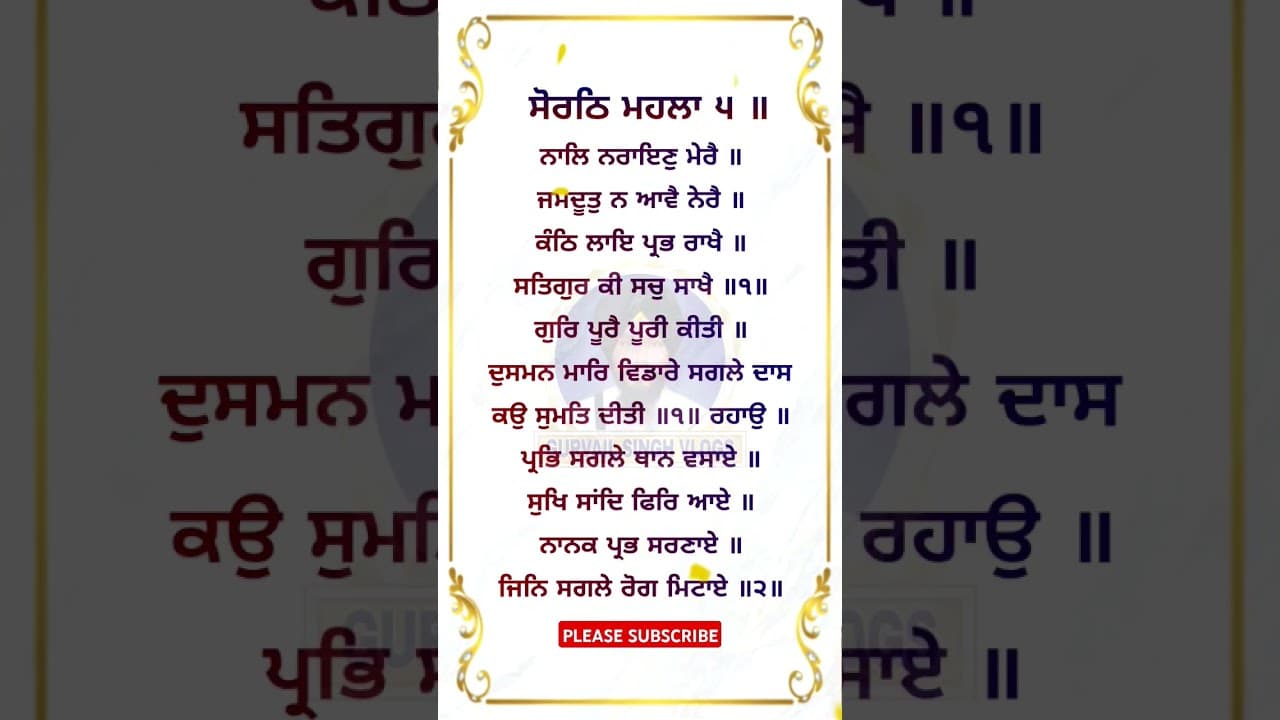 ਸੋਰਠਿ ਮਹਲਾ ੫ ॥
ਨਾਲਿ ਨਰਾਇਣੁ ਮੇਰੈ ॥
ਜਮਦੂਤੁ ਨ ਆਵੈ ਨੇਰੈ ॥
ਕੰਠਿ ਲਾਇ ਪ੍ਰਭ ਰਾਖੈ ॥
ਸਤਿਗੁਰ ਕੀ ਸਚੁ ਸਾਖੈ ॥੧॥
ਗੁਰਿ ਪੂਰੈ ਪੂਰੀ ਕੀਤੀ ॥
ਦੁਸਮਨ ਮਾਰਿ ਵਿਡਾਰੇ ਸਗਲੇ ਦਾਸ
ਕਉ ਸੁਮਤਿ ਦੀਤੀ ॥੧॥ ਰਹਾਉ ॥
GURVAIL SINGH VLOGS
ਪ੍ਰਭਿ ਸਗਲੇ ਥਾਨ ਵਸਾਏ ॥
ਸੁਖਿ ਸਾਂਦਿ ਫਿਰਿ ਆਏ ॥
ਨਾਨਕ ਪ੍ਰਭ ਸਰਣਾਏ ॥
ਜਿਨਿ ਸਗਲੇ ਰੋਗ ਮਿਟਾਏ ॥੨॥
PLEASE SUBSCRIBE